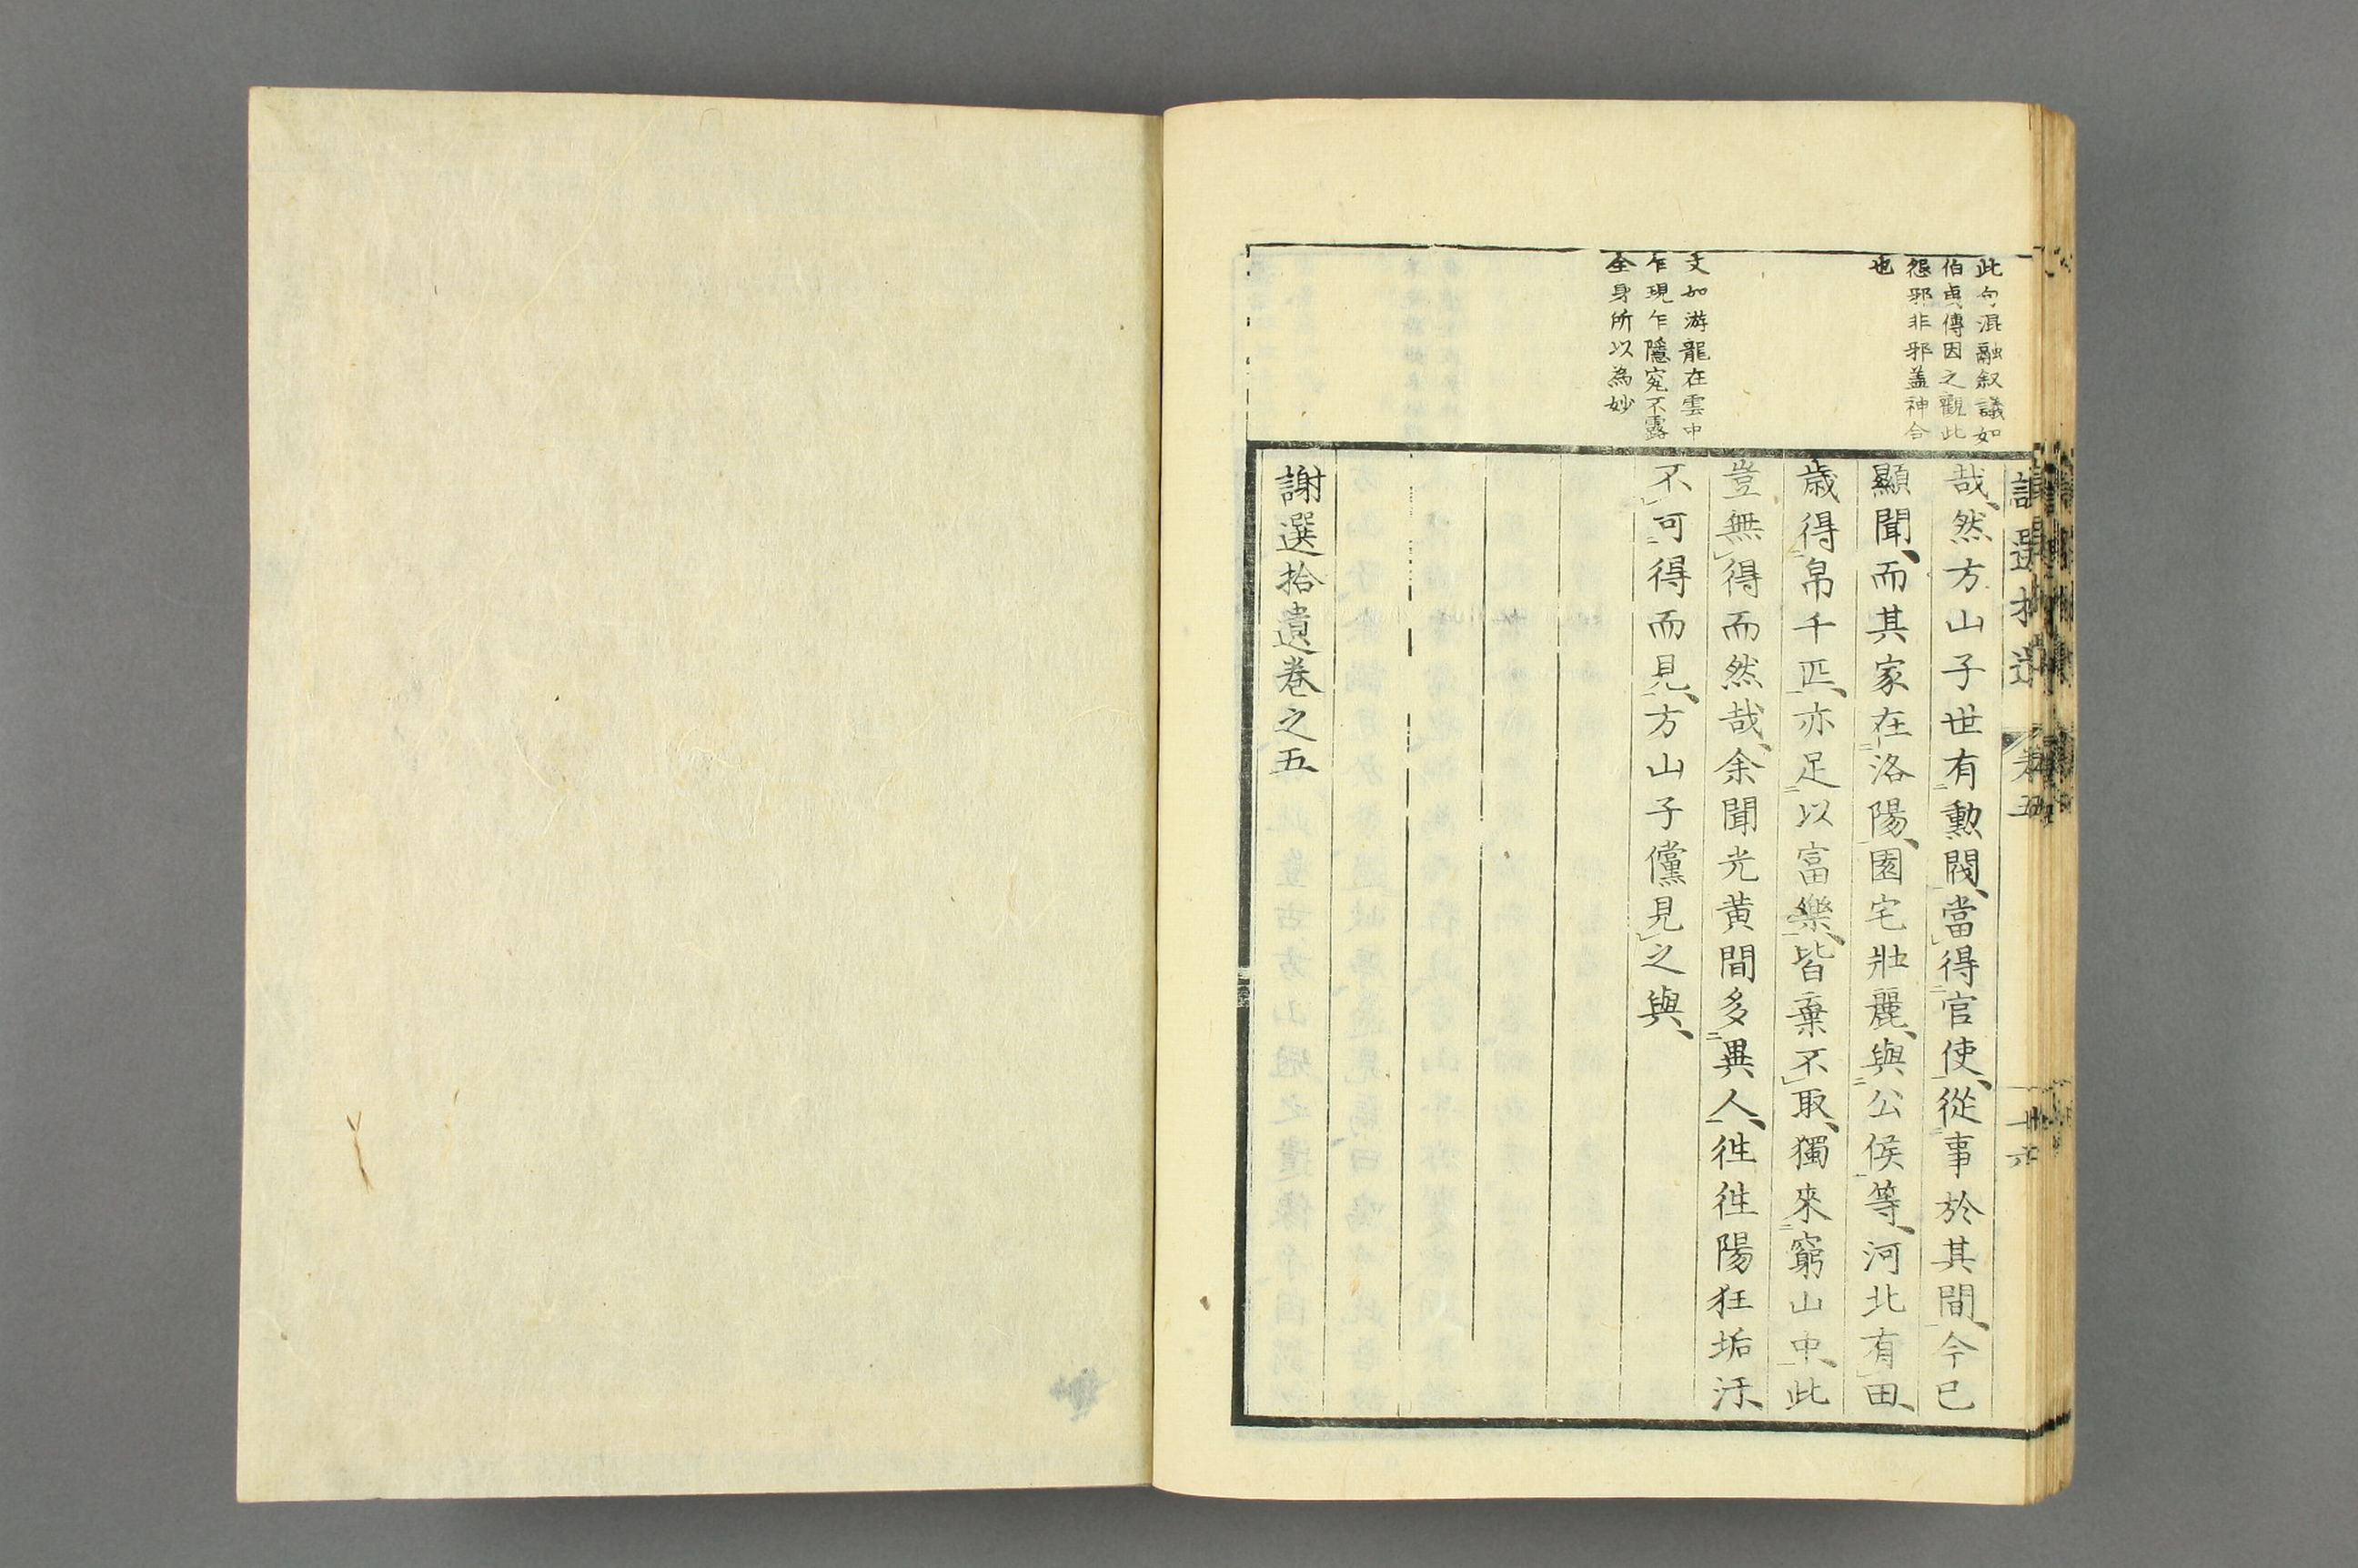 此句混融叙議如
伯夷傳因之觀此
怨邪非邪盖神合
也
文如游龍在雲中
乍現乍隱究不露
全身所以為妙
哉、然方山子世有勳閥、當得官使、從事於其間、今已
顯聞、而其家在洛陽、園宅壯麗、與公侯等、河北有田、
歳得帛千匹、亦足以富樂、皆棄不取、獨來窮山中、此
豈無得而然哉、余聞光黄間多異人、徃徃陽狂垢汙、
不可得而見、方山子儻見之與、
謝選拾遺卷之五